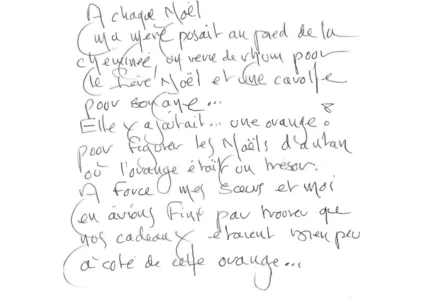 A chaque Noël
ma mère posait au pied de la
cheminée un verre de rhum pour
le Père Noël et une carotte
pour son âne...
Elle y ajoutait... une orange
pour figurer les Noëls d'autan
où l'orange était un trésor.
A force mes sœurs et moi
en avions fini par trouver que
nos cadeaux étaient bien peu
à coté de cette orange...